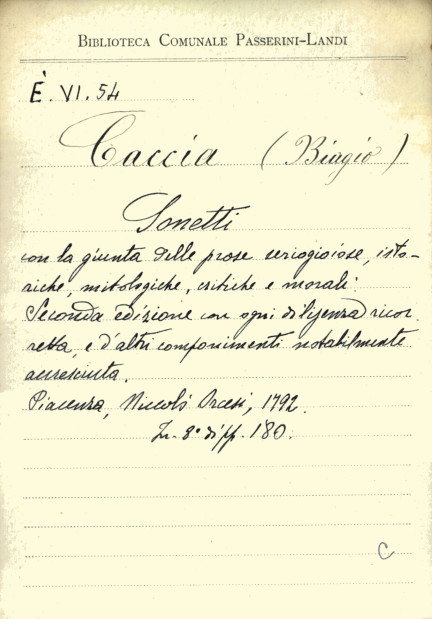 BIBLIOTECA COMUNALE PASSERINI-LANDI
È. VI. 54
Caccia (Biagio)
Sonetti
con la giunta delle prose seriogioiose, isto-
riche, mitologiche, critiche e morali.
Seconda edizione con ogni diligenza ricor-
retta, e d'altri componimenti notabilmente
accresciuta.
Piacenza, Niccolò Orcesi, 1792.
In-8° di pp. 180.
C